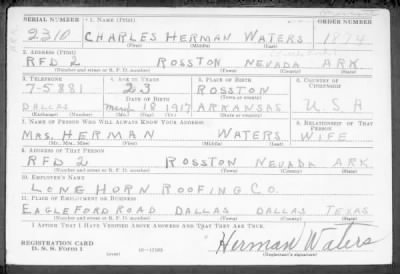 SERIAL NUMBER 1. NAME (Print) ORDER NUMBER
2310 CHARLES HERMAN WATERS 1874
(First) (Middle) (Last)
2. ADDRESS (Print)
RFD 2 ROSSTON NEVADA ARK
(Number and street or R. F. D. number) (Town) (County) (State)
3. TELEPHONE 4. AGE IN YEARS 5. PLACE OF BIRTH 6. COUNTRY OF CITIZENSHIP
7-5881 23 ROSSTON
DATE OF BIRTH (Town or county)
DALLAS 18 1917 ARKANSAS U.S.A
(Exchange) (Number) (Mo.) (Day) (Yr.) (State or country)
7. NAME OF PERSON WHO WILL ALWAYS KNOW YOUR ADDRESS 8. RELATIONSHIP OF THAT PERSON
MRS. HERMAN WATERS WIFE
(Mr., Mrs., Miss) (First) (Middle) (Last)
9. ADDRESS OF THAT PERSON
RFD 2 ROSSTON NEVADA ARK.
(Number and street or R. F. D. number) (Town) (County) (State)
10. EMPLOYER'S NAME
LONG HORN ROOFING CO.
11. PLACE OF EMPLOYMENT OR BUSINESS
EAGLE FORD ROAD DALLAS DALLAS TEXAS
(Number and street or R. F. D. number) (Town) (County) (State)
I AFFIRM THAT I HAVE VERIFIED ABOVE ANSWERS AND THAT THEY ARE TRUE.
REGISTRATION CARD
D. S. S. FORM 1 (over) Herman Waters
(Registrant's signature)